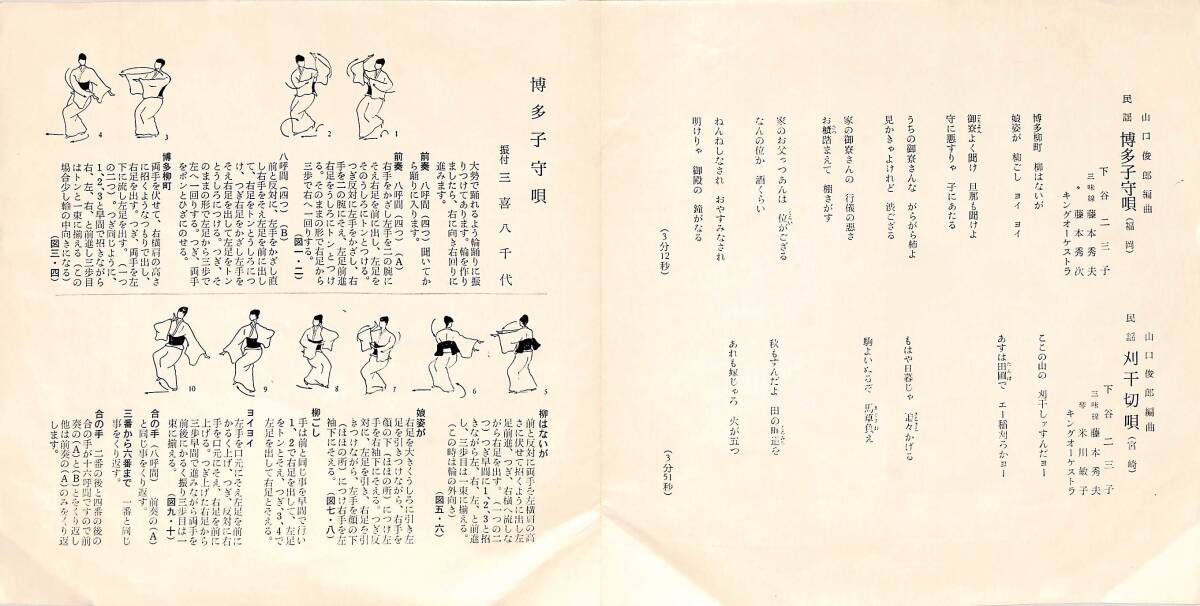 山口俊郎編曲
民謡 博多子守唄(福岡)
下谷二三子
三味線 藤本秀夫
〃 藤本秀次
キングオーケストラ
博多柳町 柳はないが
娘姿が 柳ごし ヨイ ヨイ
御寮よく聞け 旦那も聞けよ
守に悪すりゃ 子にあたる
うちの御寮さんな がらがら柿よ
見かきゃよけれど 渋ござる
家の御寮さんの 行儀の悪さ
お櫃踏まえて 棚さがす
家のお父っつあんは 位がござる
なんの位か 酒くらい
ねんねしなされ おやすみなされ
明けりゃ 御殿の 鐘がなる
(3分12秒)
山口俊郎編曲
民謡 刈干切唄(宮崎)
下谷二三子
三味線 藤本秀夫
琴 米川敏子
キングオーケストラ
ここの山の 刈干しァすんだヨー
あすは田圃で エー稲刈ろかヨー
もはや日暮じゃ 追々かげる
駒よいぬるぞ 馬草負え
秋もすんだよ 田の畦道を
あれも嫁じゃろ 火が五つ
(3分51秒)
博多子守唄
振付 三喜八千代
1
2
3
4
大勢で踊れるよう輪踊りに振
りつけてあります。輪を作り
ましたら、右に向き右回りに
進みます。
前奏 八呼間(四つ)聞いてか
ら踊りに入ります。
前奏 八呼間(四つ)(A)
右手をかざし左手を二の腕に
そえ右足を前に出し、左足を
そのうしろにトンとつける。
つぎ反対に左手をかざし、右
手を二の腕にそえ、左足前進
右足をうしろにトン とつけ
る。そのままの形で右足から
三歩で右へ一回する。
(図一・二)
八呼間(四つ)(B)
前と反対に、左手をかざし直
し右手をそえ左足を前に出し
て、右足をトンとうしろにつ
け、つぎ右手をかざし左手を
そえ右足を出して左足をトン
とうしろにつける。つぎ、そ
のままの形で左足から三歩で
左へ一回りする。つぎ、両手
をポンとひざにのせる。
博多柳町
両手を伏せて、右横肩の高さ
に招くようなつもりで出し、
右足を出す。つぎ、両手を左
下に流し左足を出す。(一つ
の二つ)。つぎ同じように、
1、2、3と早間で招きながら
右、左、右、と前進し三歩目
はトンと一束に揃える(この
場合少し輪の中向きになる)
(図三・四)
5
6
7
8
9
10
柳はないが
前と反対に両手を左横肩の高
さに伏せて招くように出し左
足前進、つぎ、右横へ流しな
がら右足を出す。(一つの二
つ)つぎ早間に1、2、3と招
きながら左、右、左、と前進
し、三歩目は一束に揃える。
(この時は輪の外向き)
(図五・六)
娘姿が
右足を大きくうしろに引き左
足を引きつけながら、右手を
顔の下(ほほの所)につけ左
手を右袖下にそえる。つぎ反
対に、左足を引き、右足を引
きつけながら、左手を顔の下
(ほほの所)につけ右手を左
袖下にそえる。(図七・八)
柳ごし
手は前と同じ事を早間で行い
1、2で右足を出して、左足
をトンとそえ、つぎ、3、4で
左足を出して右足とそえる。
ヨイヨイ
左手を口元にそえ左足を前に
かるく上げ、つぎ、反対に右
手を口元にそえ、右足を前に
上げる。つぎ上げた右足から
三歩早間で進みながら両手を
前後にかるく振り三歩目は一
束に揃える。(図九・十)
合の手(八呼間) 前奏の(A)
と同じ事をくり返す。
三番から六番まで 一番と同じ
事をくり返す。
合の手 二番の後と四番の後の
合の手が十六呼間ですので前
奏の(A)と(B)とをくり返し
他は前奏の(A)のみをくり返
します。